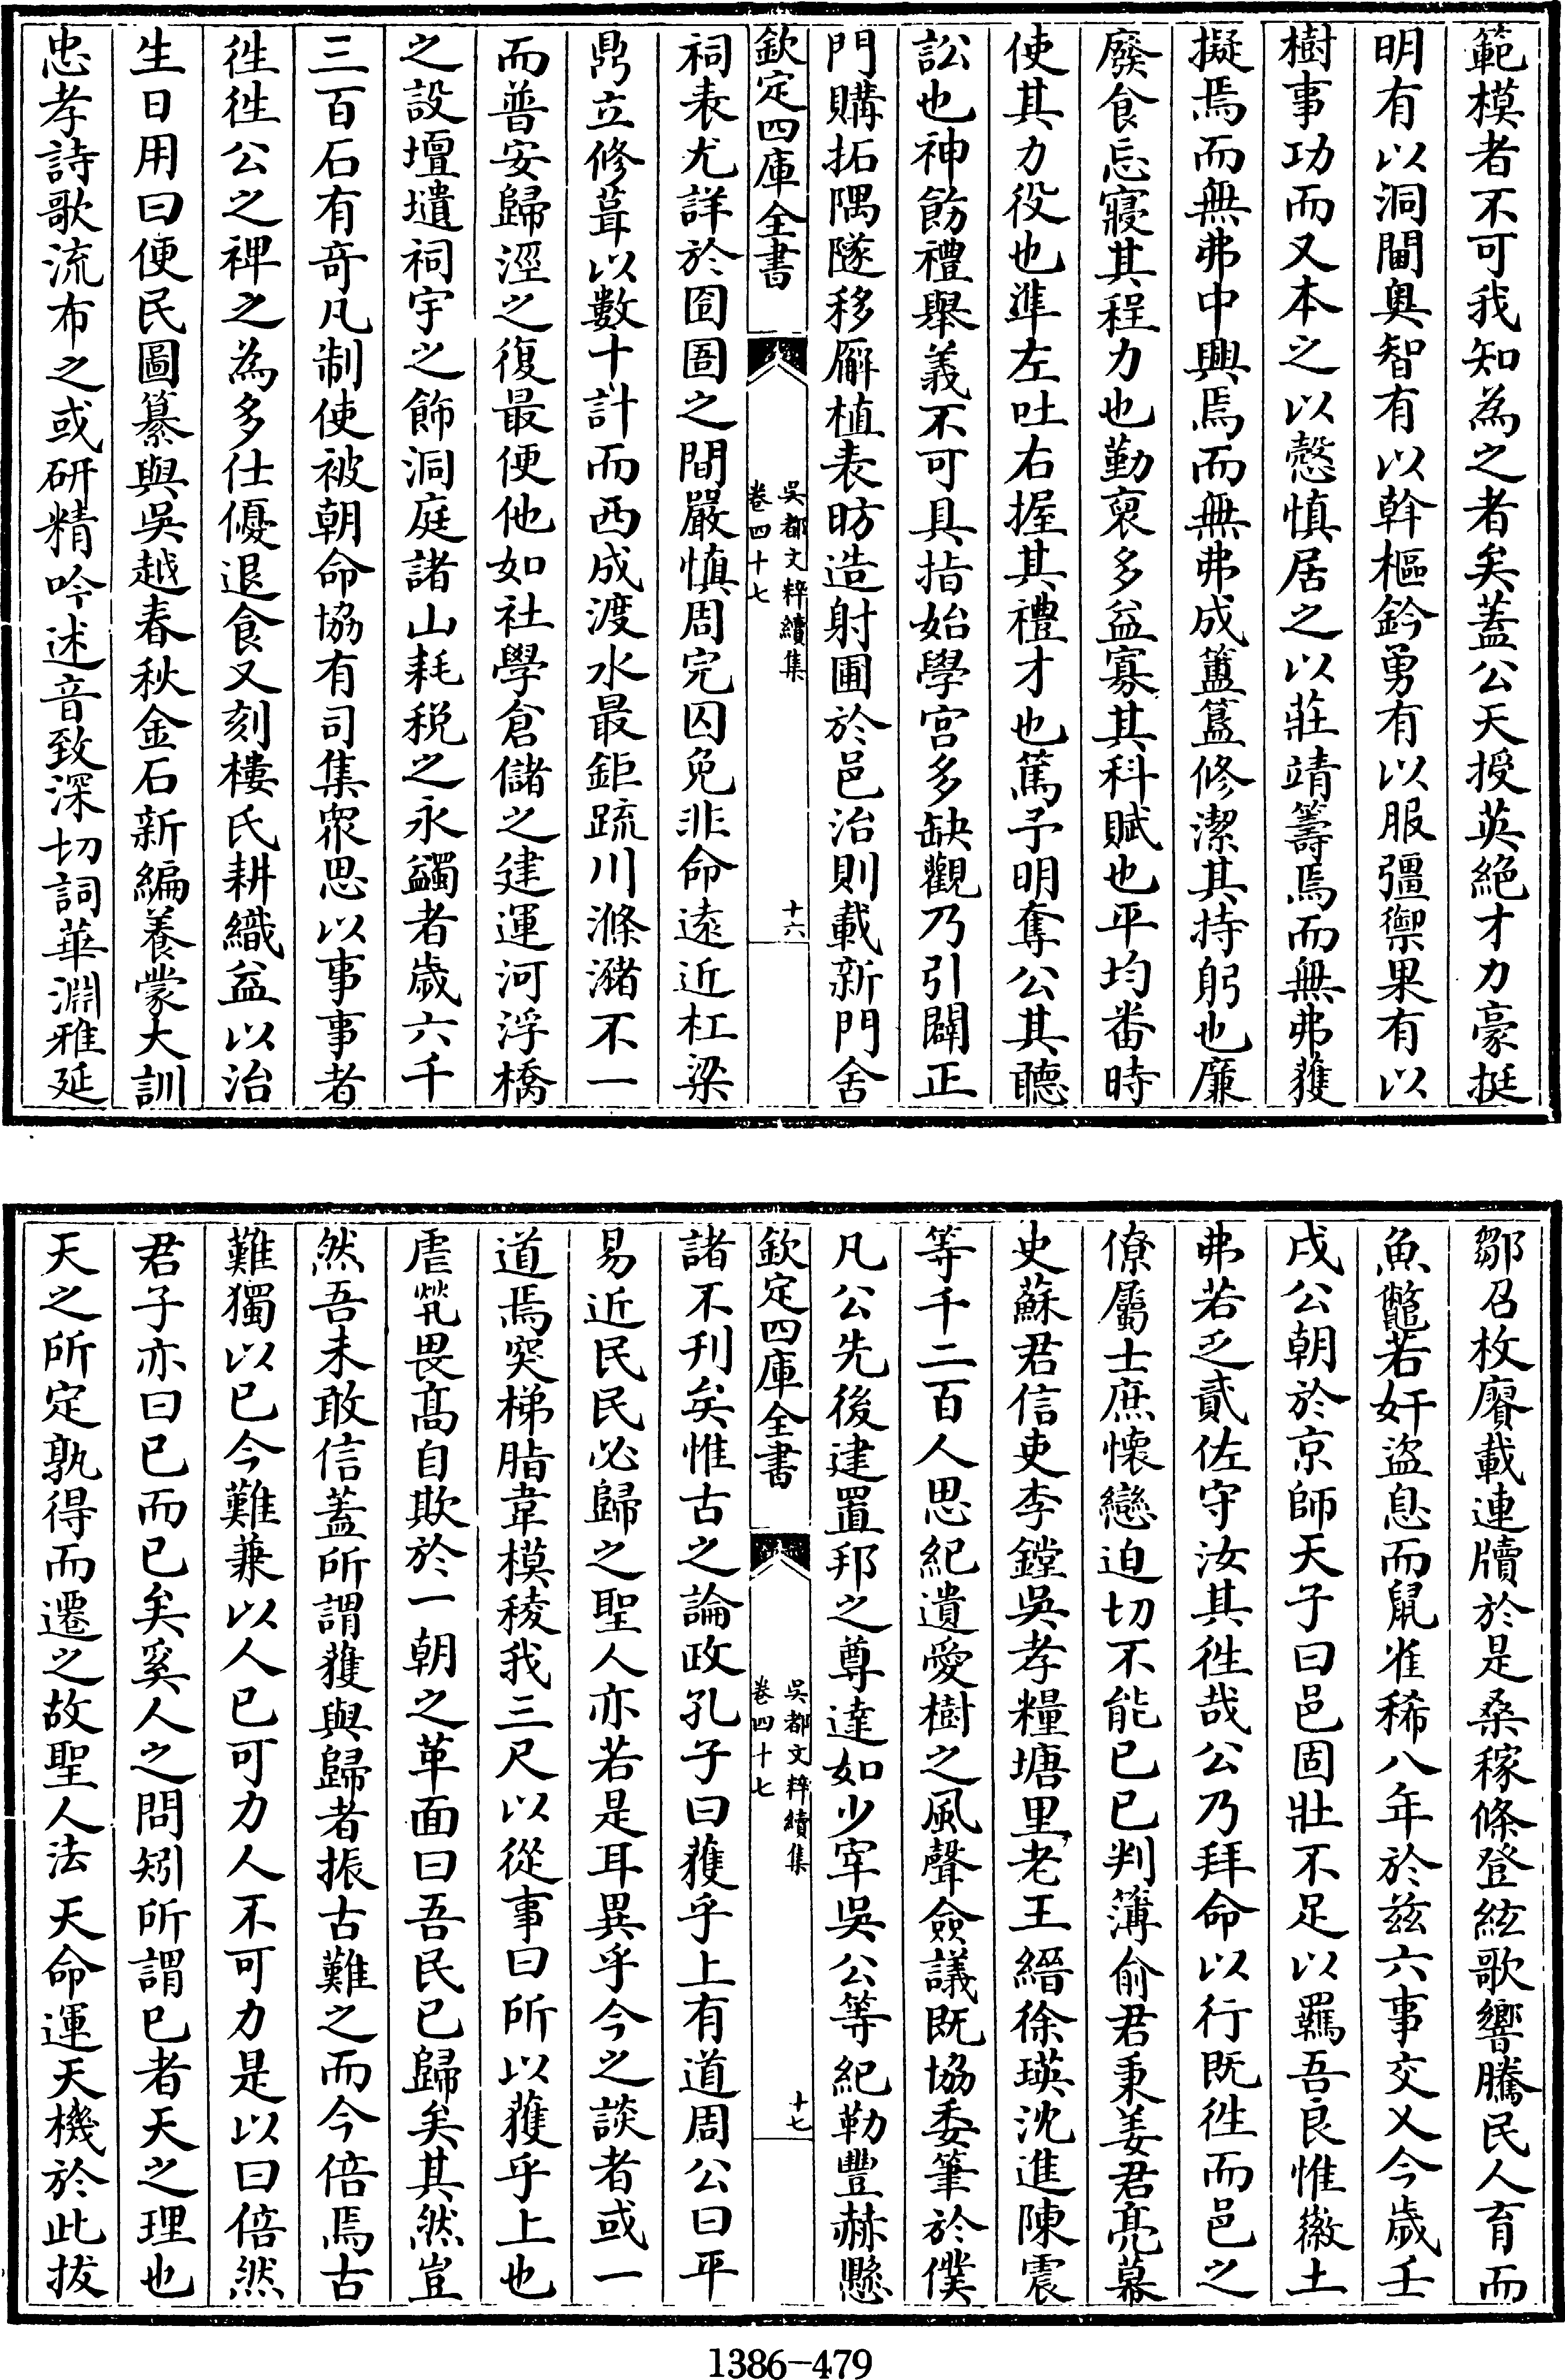 範模者不可我知為之者矣蓋公天授英絕才力豪挺
明有以洞闔奥智有以斡樞鈐勇有以服彊禦果有以
樹事功而又本之以慤慎居之以莊靖籌焉而無弗獲
擬焉而無弗中興焉而無弗成簠簋修潔其持躬也廉
廢食忘寢其程力也勤裒多益寡其科賦也平均番時
使其力役也準左吐右握其禮才也篤予明奪公其聽
訟也神飭禮舉義不可具指始學宫多缺觀乃引闢正
門購拓隅隧移廨植表昉造射圃於邑治則載新門舍
欽定四庫全書
吳都文粹續集
卷四十七
十六
祠表尤詳於囹圄之間嚴慎周完囚免非命遠近杠梁
鼎立修葺以數十計而西成渡水最鉅疏川滌瀦不一
而普安歸涇之復最便他如社學倉儲之建運河浮橋
之設壇壝祠宇之飾洞庭諸山耗税之永蠲者歲六千
三百石有奇凡制使被朝命協有司集衆思以事事者
徃徃公之裨之為多仕優退食又刻樓氏耕織益以治
生日用曰便民圖纂與吳越春秋金石新編養蒙大訓
忠孝詩歌流布之或研精吟述音致深切詞華淵雅延
鄒召枚賡載連牘於是桑稼條登絃歌響騰民人育而
魚鼈若奸盜息而鼠雀稀八年於兹六事交乂今歲壬
戌公朝於京師天子曰邑固壯不足以羈吾良惟徽土
弗若乏貳佐守汝其徃哉公乃拜命以行既徃而邑之
僚屬士庶懷戀迫切不能已已判簿俞君秉姜君亮幕
史蘇君信吏李鏜吳孝糧塘里老王縉徐瑛沈進陳震
等千二百人思紀遺愛樹之風聲僉議既協委筆於僕
凡公先後建置邦之尊達如少宰吳公等紀勒豐赫懸
欽定四庫全書
吳都文粹續集
卷四十七
十七
諸不刋矣惟古之論政孔子曰獲乎上有道周公曰平
易近民民必歸之聖人亦若是耳異乎今之談者或一
道焉突梯脂韋模稜我三尺以從事曰所以獲乎上也
虐煢畏髙自欺於一朝之革面曰吾民已歸矣其然豈
然吾未敢信蓋所謂獲與歸者振古難之而今倍焉古
難獨以已今難兼以人已可力人不可力是以曰倍然
君子亦曰已而已矣奚人之問矧所謂已者天之理也
天之所定孰得而遷之故聖人法天天命運天機於此拔
1386-479